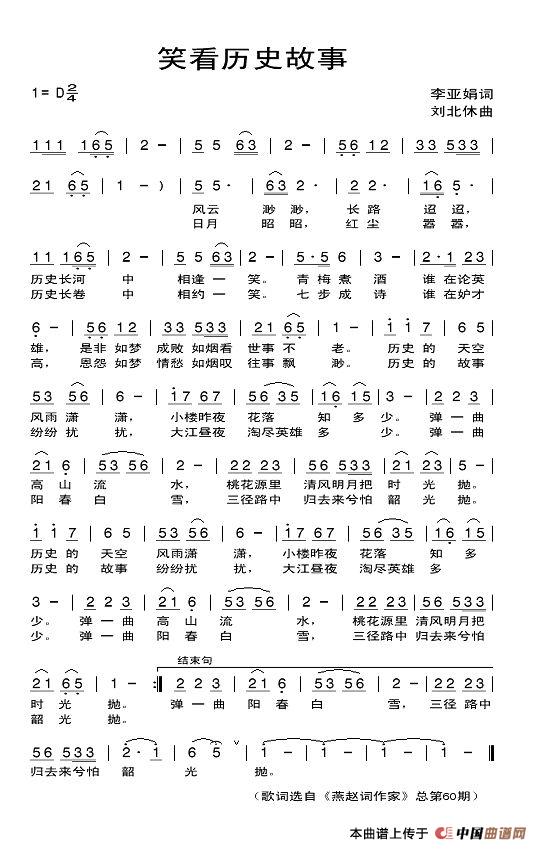 笑看历史故事
1= D 2/4
李亚娟词
刘北休曲
111 165 | 2 - | 5 5 63 | 2 - | 56 12 | 33 533 |
21 65 | 1 - ) | 5 5· | 63 3· | 2 2· | 16 5· |
风云 渺渺， 长路 迢迢，
日月 昭昭，红尘 嚣嚣，
11 165 | 2 - | 5 5 63 | 2 - | 5·5 63 | 5 - | 2·1 23 |
历史长河 中 相逢一 笑。青梅煮 酒 谁在论英
历史长卷 中 相约一 笑。七步成 诗 谁在妒才
6 - | 56 12 | 33 533 | 21 65 | 1 - | 1 1 7 | 6 5 |
雄，是非如梦 成败如烟看 世事不 老。 历史的 天空
高，恩怨如梦 情愁如烟叹 往事飘 渺。历史的 故事
53 56 | 6 - | 17 67 | 56 35 | 16 15 | 3 - | 2 2 3 |
风雨潇 潇，小楼昨夜 花落 知多 少。弹一曲
纷纷扰 扰，大江昼夜 淘尽英雄 多 少。弹一曲
21 6 | 53 56 | 6 - | 223 21 | 56 533 | 21 23 | 5 - |
高山流 水，桃花源里 清风明月把 时光 抛。
阳春白 雪，三径路中 归去来兮怕 韶光 抛。
1 1 7 | 6 5 | 53 56 | 6 - | 17 67 | 56 35 | 16 15 |
历史的 天空 风雨潇 潇，小楼昨夜 花落 知多
历史的 故事 纷纷扰 扰，大江昼夜 淘尽英雄 多
3 - | 2 2 3 | 21 6 | 53 56 | 6 - | 223 21 | 56 533 |
少。弹一曲 高山流 水，桃花源里 清风明月把
少。弹一曲 阳春白 雪，三径路中 归去来兮怕
结束句
21 65 | 1 - :‖ 2 2 3 | 21 6 | 53 56 | 6 - | 223 21 |
时光 抛。 弹一曲 阳春白 雪，三径路中
韶光 抛。
56 533 | 2·1 | 6 5 ∨ | 1 - | 1 - | 1 - | 1 - ‖
归去来兮怕 韶 光 抛。
（歌词选自《燕赵词作家》总第60期）
本曲谱上传于 中国曲谱网